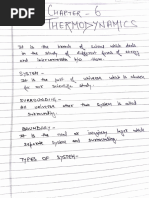 CHAPTER - 6
THERMODYNAMICS
It is the branch of science which deals
in the study of different forms of energy
and interconversion b/w them.
SYSTEM -
It is the part of universe which is chosen
for our scientific study.
SURROUNDING -
universe other than system is called
surrounding.
BOUNDARY -
It is the real or imaginary layer which
separate System and surrounding.
TYPES OF SYSTEM -